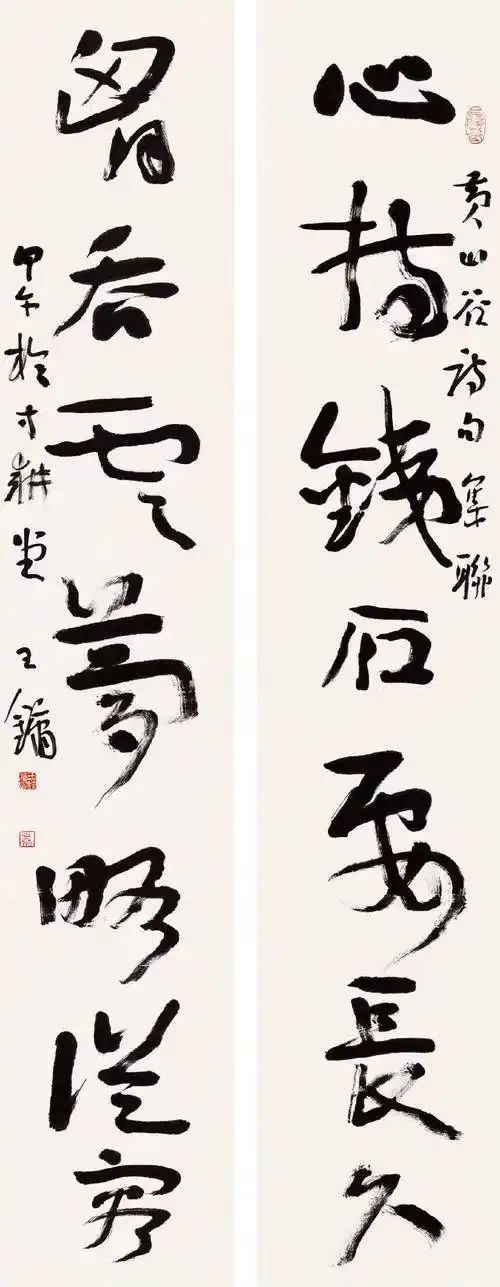 黃山谷詩句集聯
心持鐵石要長久
胷吞雲夢略從容
甲午於寸耕堂 王鏞